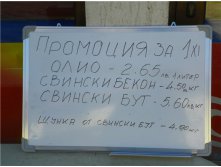 ПРОМОЦИЯ ЗА 1Л
ОЛИО - 2.65 лв. литър
СВИНСКИ БЕКОН - 4.50 кг
СВИНСКИ БУТ - 5.60 лв.кг
ШУНКА ОТ СВИНСКИ БУТ - 4.60 кг